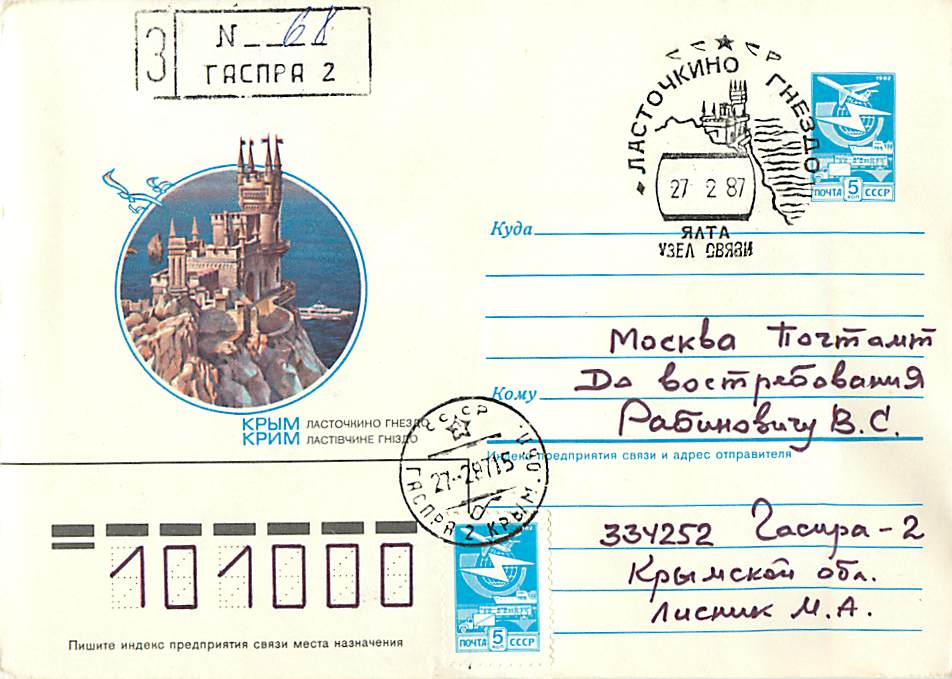 З
N 68
ГАСПРА 2
СССР
ЛАСТОЧКИНО ГНЕЗДО
27 2 87
ЯЛТА
УЗЕЛ СВЯЗИ
1982
ПОЧТА 5 КОП СССР
Куда
Москва Почтамт
Кому
До востребования
Рабиновичу В.С.
КРЫМ ЛАСТОЧКИНО ГНЕЗДО
КРИМ ЛАСТІВЧИНЕ ГНІЗДО
Индекс предприятия связи и адрес отправителя
СССР
27-28715
ГАСПРА 2 КРЫМ. ОБЛ.
334252 Гаспра-2
Крымской обл.
Лисник М.А.
101000
ПОЧТА 5 КОП СССР
Пишите индекс предприятия связи места назначения